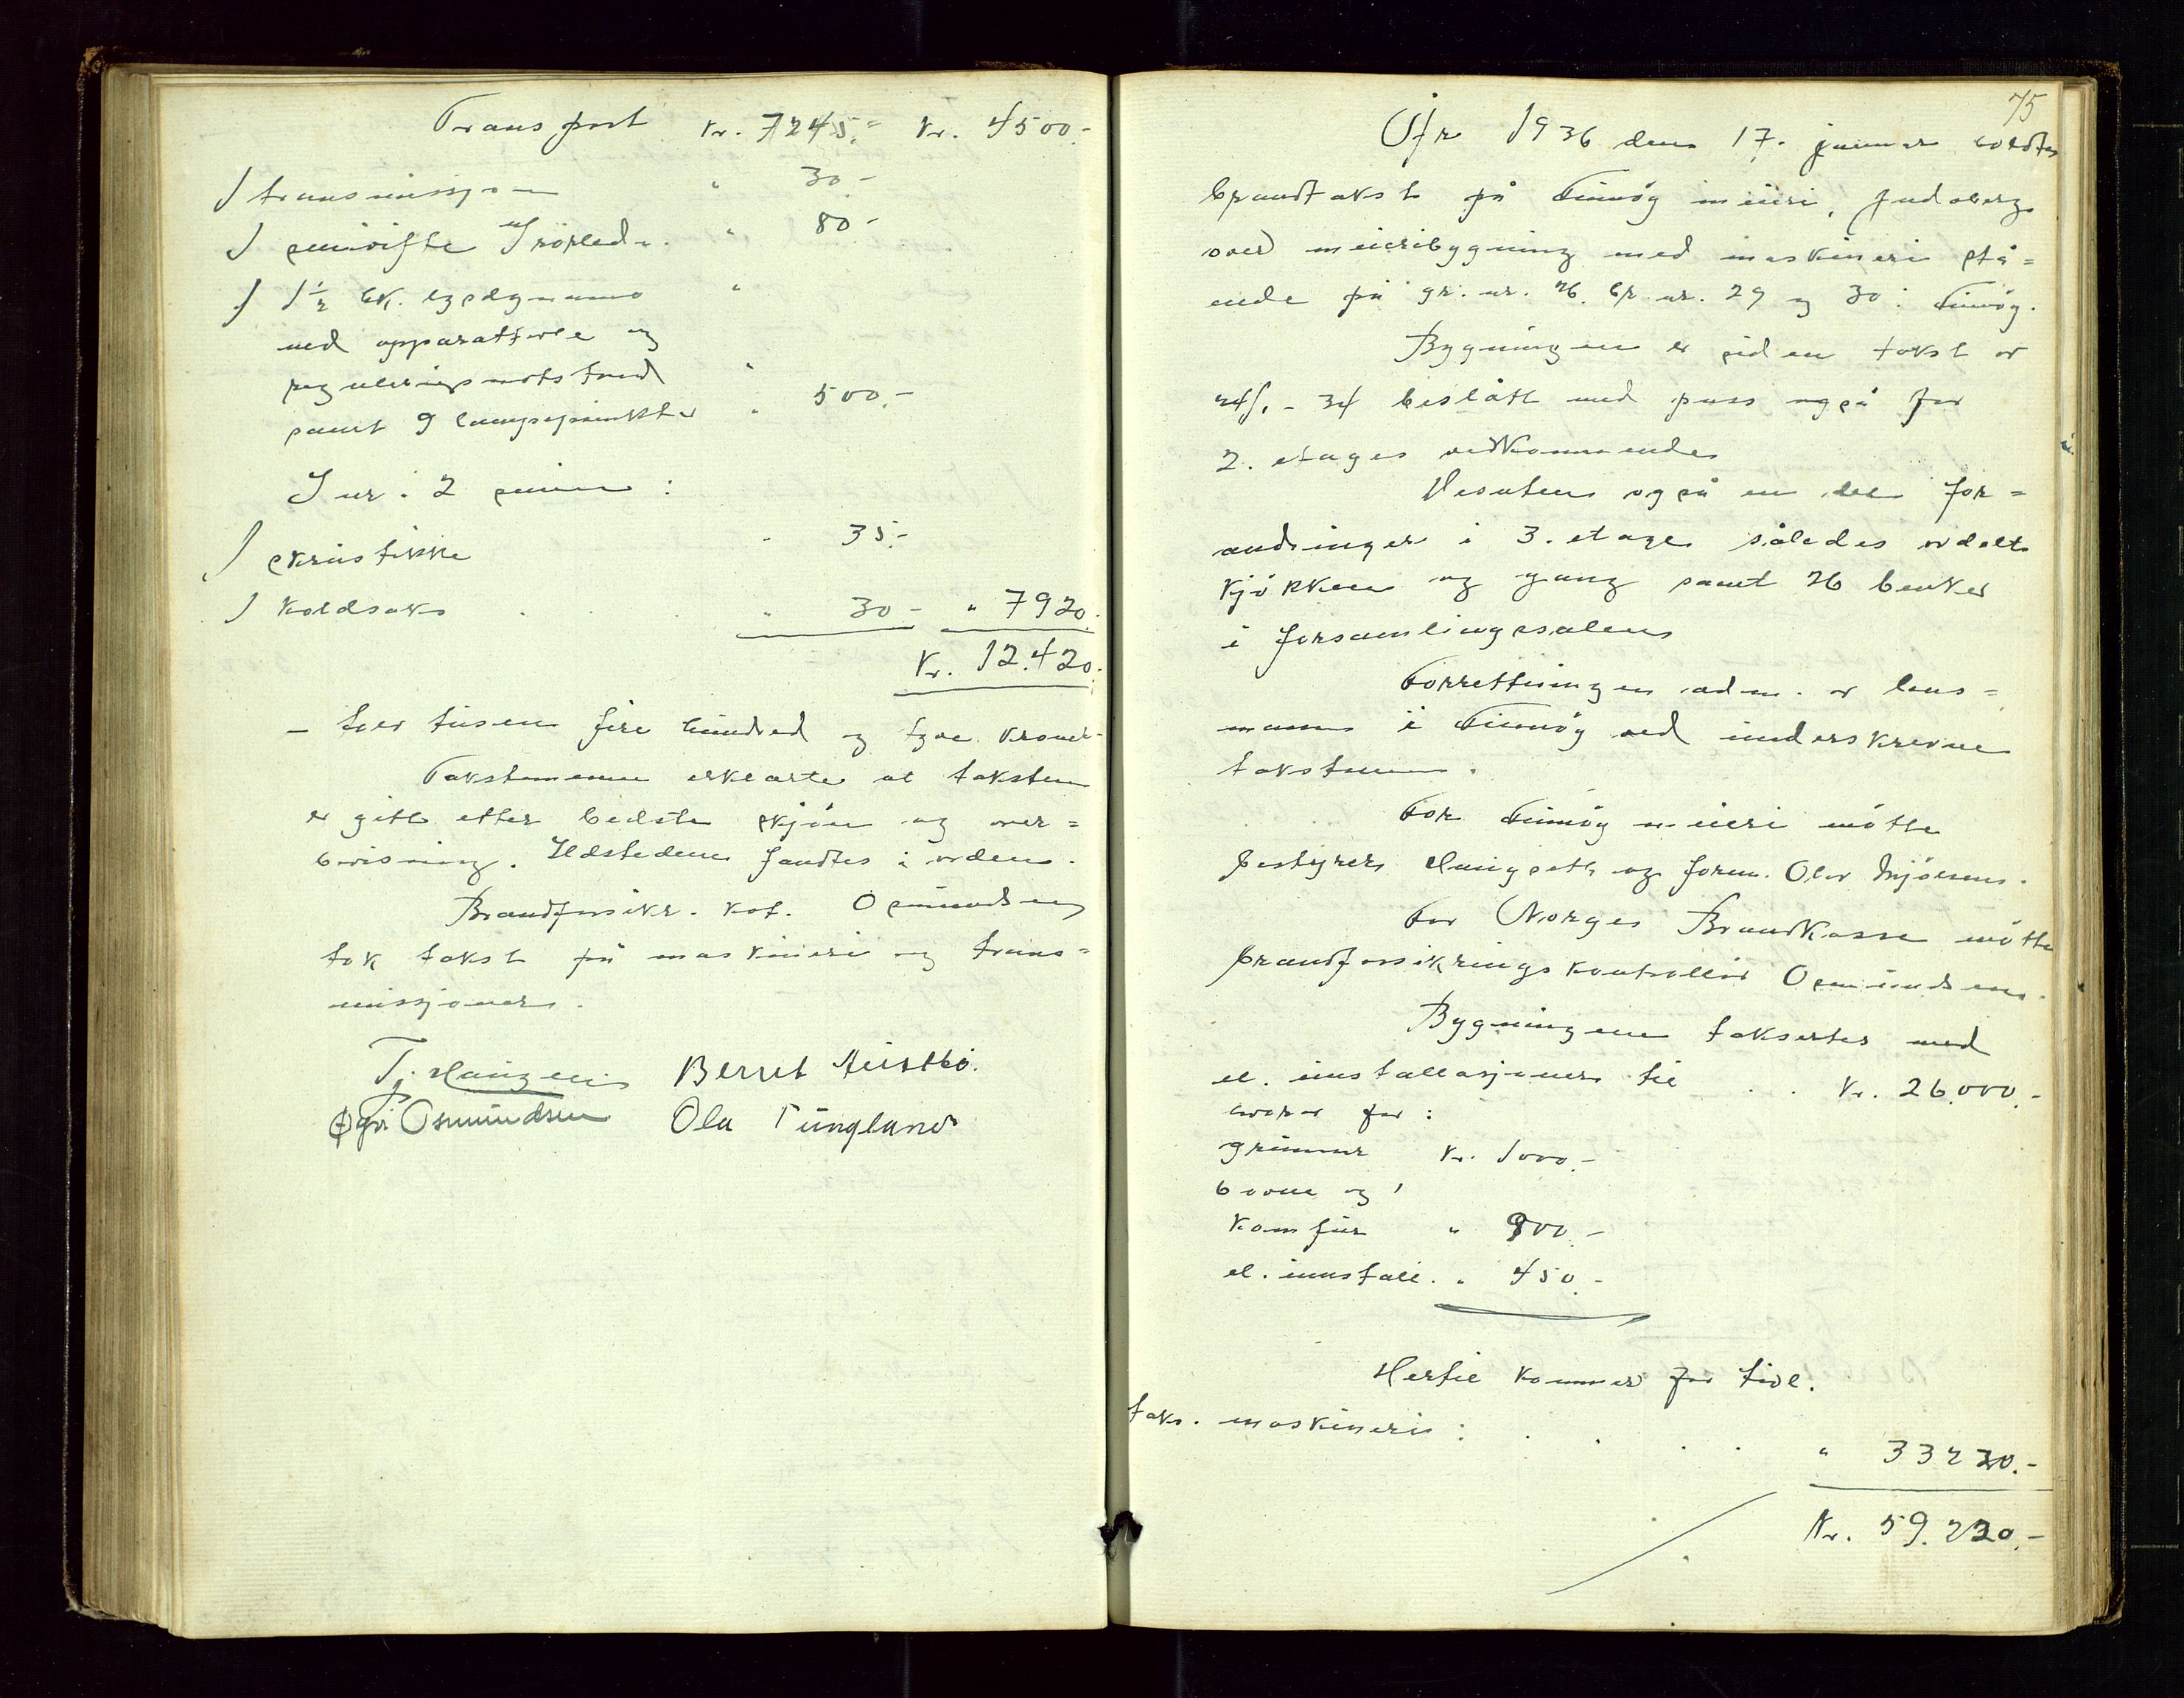 Transport kr. 7245.- kr. 4500.-
1 transmissjon " 30.-
1 smivifte I rörled. " 80.-
1 1½ hk. lysdynamo "
med apparattavle og
reguleringsmotstand "
samt 9 lampepunkter " 500.-
I nr. 2 smien :
1 skrustikke " 35.-
1 koldsaks " 30.- " 7920.-
Kr. 12.420.-
- tolv tusen fire hundred og tyve kroner -
Takstmennene erklærte at taksten
er gitt etter bedste skjön og over=
bevisning. Ildstedene fandtes i orden.
Brandforsikr. kot. Osmundsen
tok takst på maskineri og trans=
missjoner.
T. Haugen Bernt Austbö.
Osmundsen Ola Tungland
75
År 1936 den 17. januar holdtes
brandtakst på Finnöy meieri, Judaberg
over meieribygning med maskineri stå=
ende på gr. nr. 26. br. nr. 29 og 30 i Finnöy.
Bygningen er siden takst av
24/1 - 34 beslått med puss også for
2. etages vedkommende
Desuten også en del for=
andringer i 3. etage således avdelt
kjökken og gang samt 26 benker
i forsamlingssalen
Forretningen adm. av lens=
mannen i Finnöy ved underskrevne
takstmenn.
For Finnöy meieri mötte
bestyrer Haugseth og form. Olav Mjölsnes.
For Norges Brandkasse mötte
brandforsikringskontrollör Osmundsen.
Bygningene taksertes med
el. installasjoner til . . kr. 26.000.-
hvorav for :
grunnmur kr. 1000.-
ovne og
komfür " 900.-
el. install. " 450.-
Hertil kommer for tidl.
taks. maskineri : . . . . " 33220.-
Kr. 59.220.-